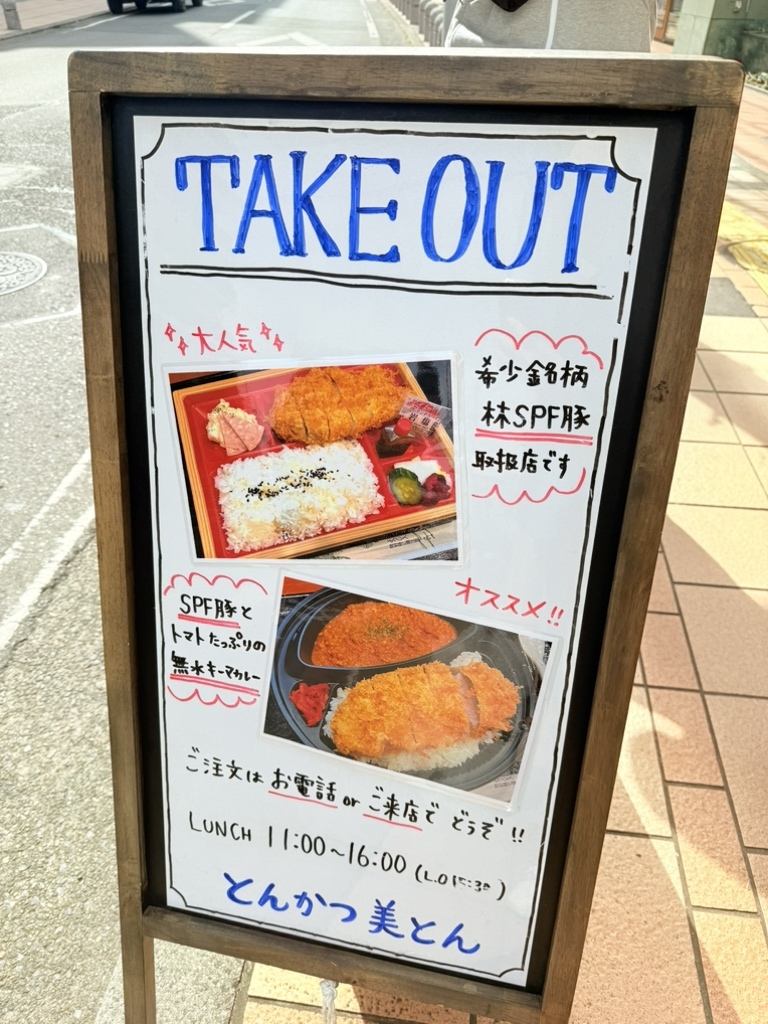 TAKE OUT
大人気
希少銘柄
林SPF豚
取扱店です
SPF豚と
トマトたっぷりの
無水キーマカレー
オススメ!!
ご注文は お電話 or ご来店で どうぞ!!
LUNCH 11:00~16:00 (L.O 15:30)
とんかつ 美とん